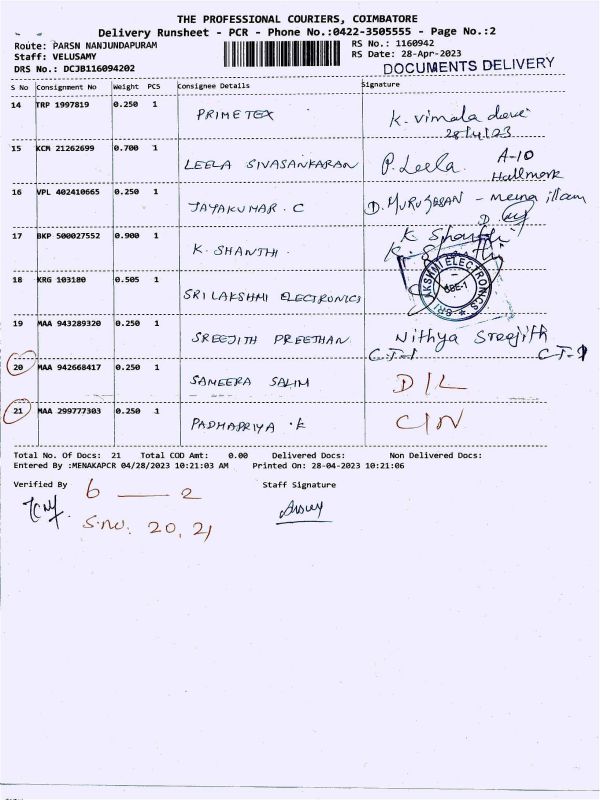 THE PROFESSIONAL COURIERS, COIMBATORE
Delivery Runsheet - PCR - Phone No.:0422-3505555 - Page No.:2
Route: PARSN NANJUNDAPURAM RS No.: 1160942
Staff: VELUSAMY RS Date: 28-Apr-2023
DRS No.: DCJB116094202 DOCUMENTS DELIVERY
S No Consignment No Weight PCS Consignee Details Signature
14 TRP 1997819 0.250 1 PRIMETEX K. Vimala devi
28/4/23
15 KCM 21262699 0.700 1 LEELA SIVASANKARAN P. Leela. A-10
Hallmark
16 VPL 402410665 0.250 1 JAYAKUMAR. C D. MURUGESAN - meena illam
17 BKP 500027552 0.900 1 K. SHANTHI. K Shanthi
K. Shanthi
18 KRG 103180 0.505 1 SRI LAKSHMI ELECTRONICS SRI LAKSHMI ELECTRONICS CBE-1
19 MAA 943289320 0.250 1 SREEJITH PREETHAN. Nithya Sreejith
20 MAA 942668417 0.250 1 SANEERA SALIM D/L
21 MAA 299777303 0.250 1 PADMAPRIYA . K C/N
Total No. Of Docs: 21 Total COD Amt: 0.00 Delivered Docs: Non Delivered Docs:
Entered By :MENAKAPCR 04/28/2023 10:21:03 AM Printed On: 28-04-2023 10:21:06
Verified By 6 — 2 Staff Signature
S.no. 20, 21